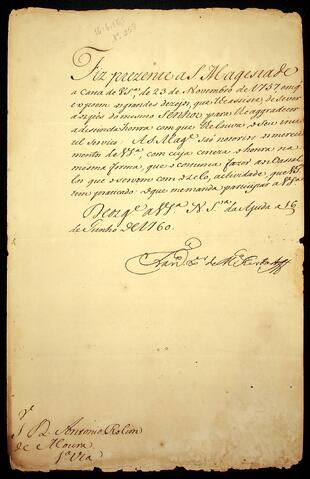 Fiz prezente a S. Magestade
a Carta de VS.ª, de 23 de Novembro de 1757, em q
expoem os grandes dezejos, que lhe assiste, de se ver
aos pés do mesmo Senhor para lhe agradecer
a destincta honra com que
Real Serviço
A S. Mag.e são notorios os mereci
mentos de VS.ª, com cuja certeza o honra na
mesma forma, que costuma fazer aos Vassal
los que o servem com zelo, actividade, que VS.ª
tem praticado: o que me manda participar a VS.ª
Deos g.e a VS.ª N. S.ra da Ajuda a 16
de Junho de 1760.
S.r D. Antonio Rolim
de Moura
1.ª Via